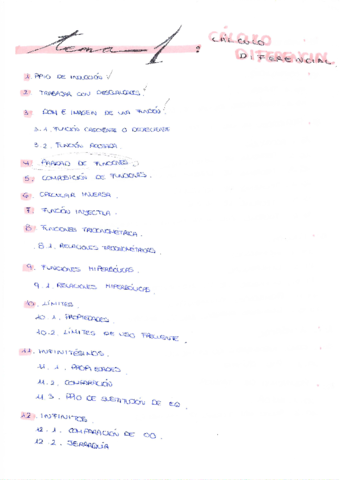 tema-1: CÁLCULO
DIFERENCIAL
1. PPIO DE INDUCCIÓN ✓
2. TRABAJAR CON DESIGUALDADES ✓
3. DOM E IMAGEN DE UNA FUNCIÓN ✓
3.1. FUNCIÓN CRECIENTE O DECRECIENTE
3.2. FUNCIÓN ACOTADA.
4. PARIDAD DE FUNCIONES.
5. COMPOSICIÓN DE FUNCIONES.
6. CALCULAR INVERSA.
7. FUNCIÓN INYECTIVA.
8. FUNCIONES TRIGONOMÉTRICA.
8.1. RELACIONES TRIGONOMÉTRICAS.
9. FUNCIONES HIPERBÓLICAS.
9.1. RELACIONES HIPERBÓLICAS.
10. LÍMITES.
10.1. PROPIEDADES.
10.2. LÍMITES DE USO FRECUENTE.
11. INFINITÉSIMOS.
11.1. PROPIEDADES.
11.2. COMPARACIÓN
11.3. PPIO DE SUSTITUCIÓN DE EQ.
12. INFINITOS.
12.1. COMPARACIÓN DE ∞.
12.2. JERARQUÍA